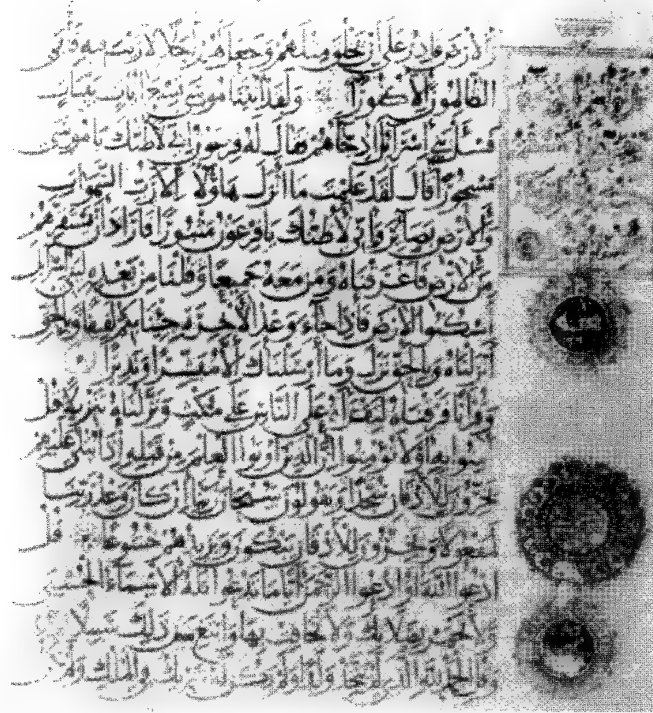 والارض قادر على ان يخلق مثلهم وجعل لهم اجلا لا ريب فيه فابى
الظالمون الا كفورا ولقد اتينا موسى تسع ايات بينات
فسئل بني اسرائيل اذ جاءهم فقال له فرعون اني لاظنك يا موسى
مسحورا قال لقد علمت ما انزل هاؤلاء الا رب السموات
والارض بصائر واني لاظنك يا فرعون مثبورا فاراد ان يستفزهم
من الارض فاغرقناه ومن معه جميعا وقلنا من بعده لبني اسرائيل
اسكنوا الارض فاذا جاء وعد الاخرة جئنا بكم لفيفا وبالحق
انزلناه وبالحق نزل وما ارسلناك الا مبشرا ونذيرا
وقرانا فرقناه لتقراه على الناس على مكث ونزلناه تنزيلا قل
امنوا به او لا تؤمنوا ان الذين اوتوا العلم من قبله اذا يتلى عليهم
يخرون للاذقان سجدا ويقولون سبحان ربنا ان كان وعد ربنا
لمفعولا ويخرون للاذقان يبكون ويزيدهم خشوعا قل
ادعوا الله او ادعوا الرحمن ايا ما تدعوا فله الاسماء الحسنى
ولا تجهر بصلاتك ولا تخافت بها وابتغ بين ذلك سبيلا
وقل الحمد لله الذي لم يتخذ ولدا ولم يكن له شريك في الملك ولم